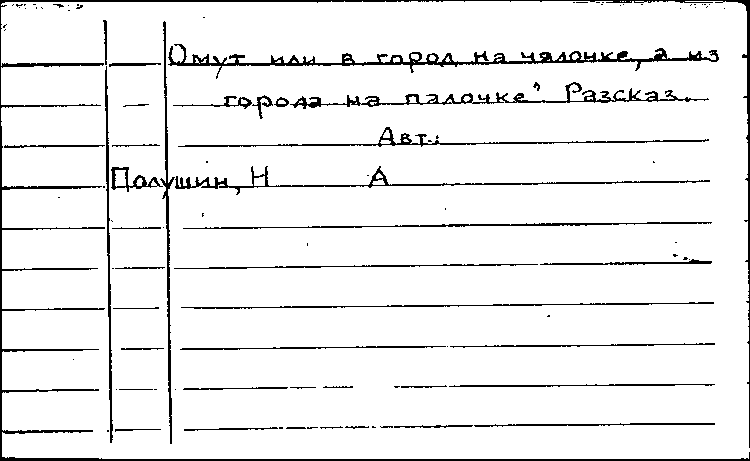 Омут или в город на чалочке, а из
города на палочке" Разсказ.
Авт.:
Полушин, Н А